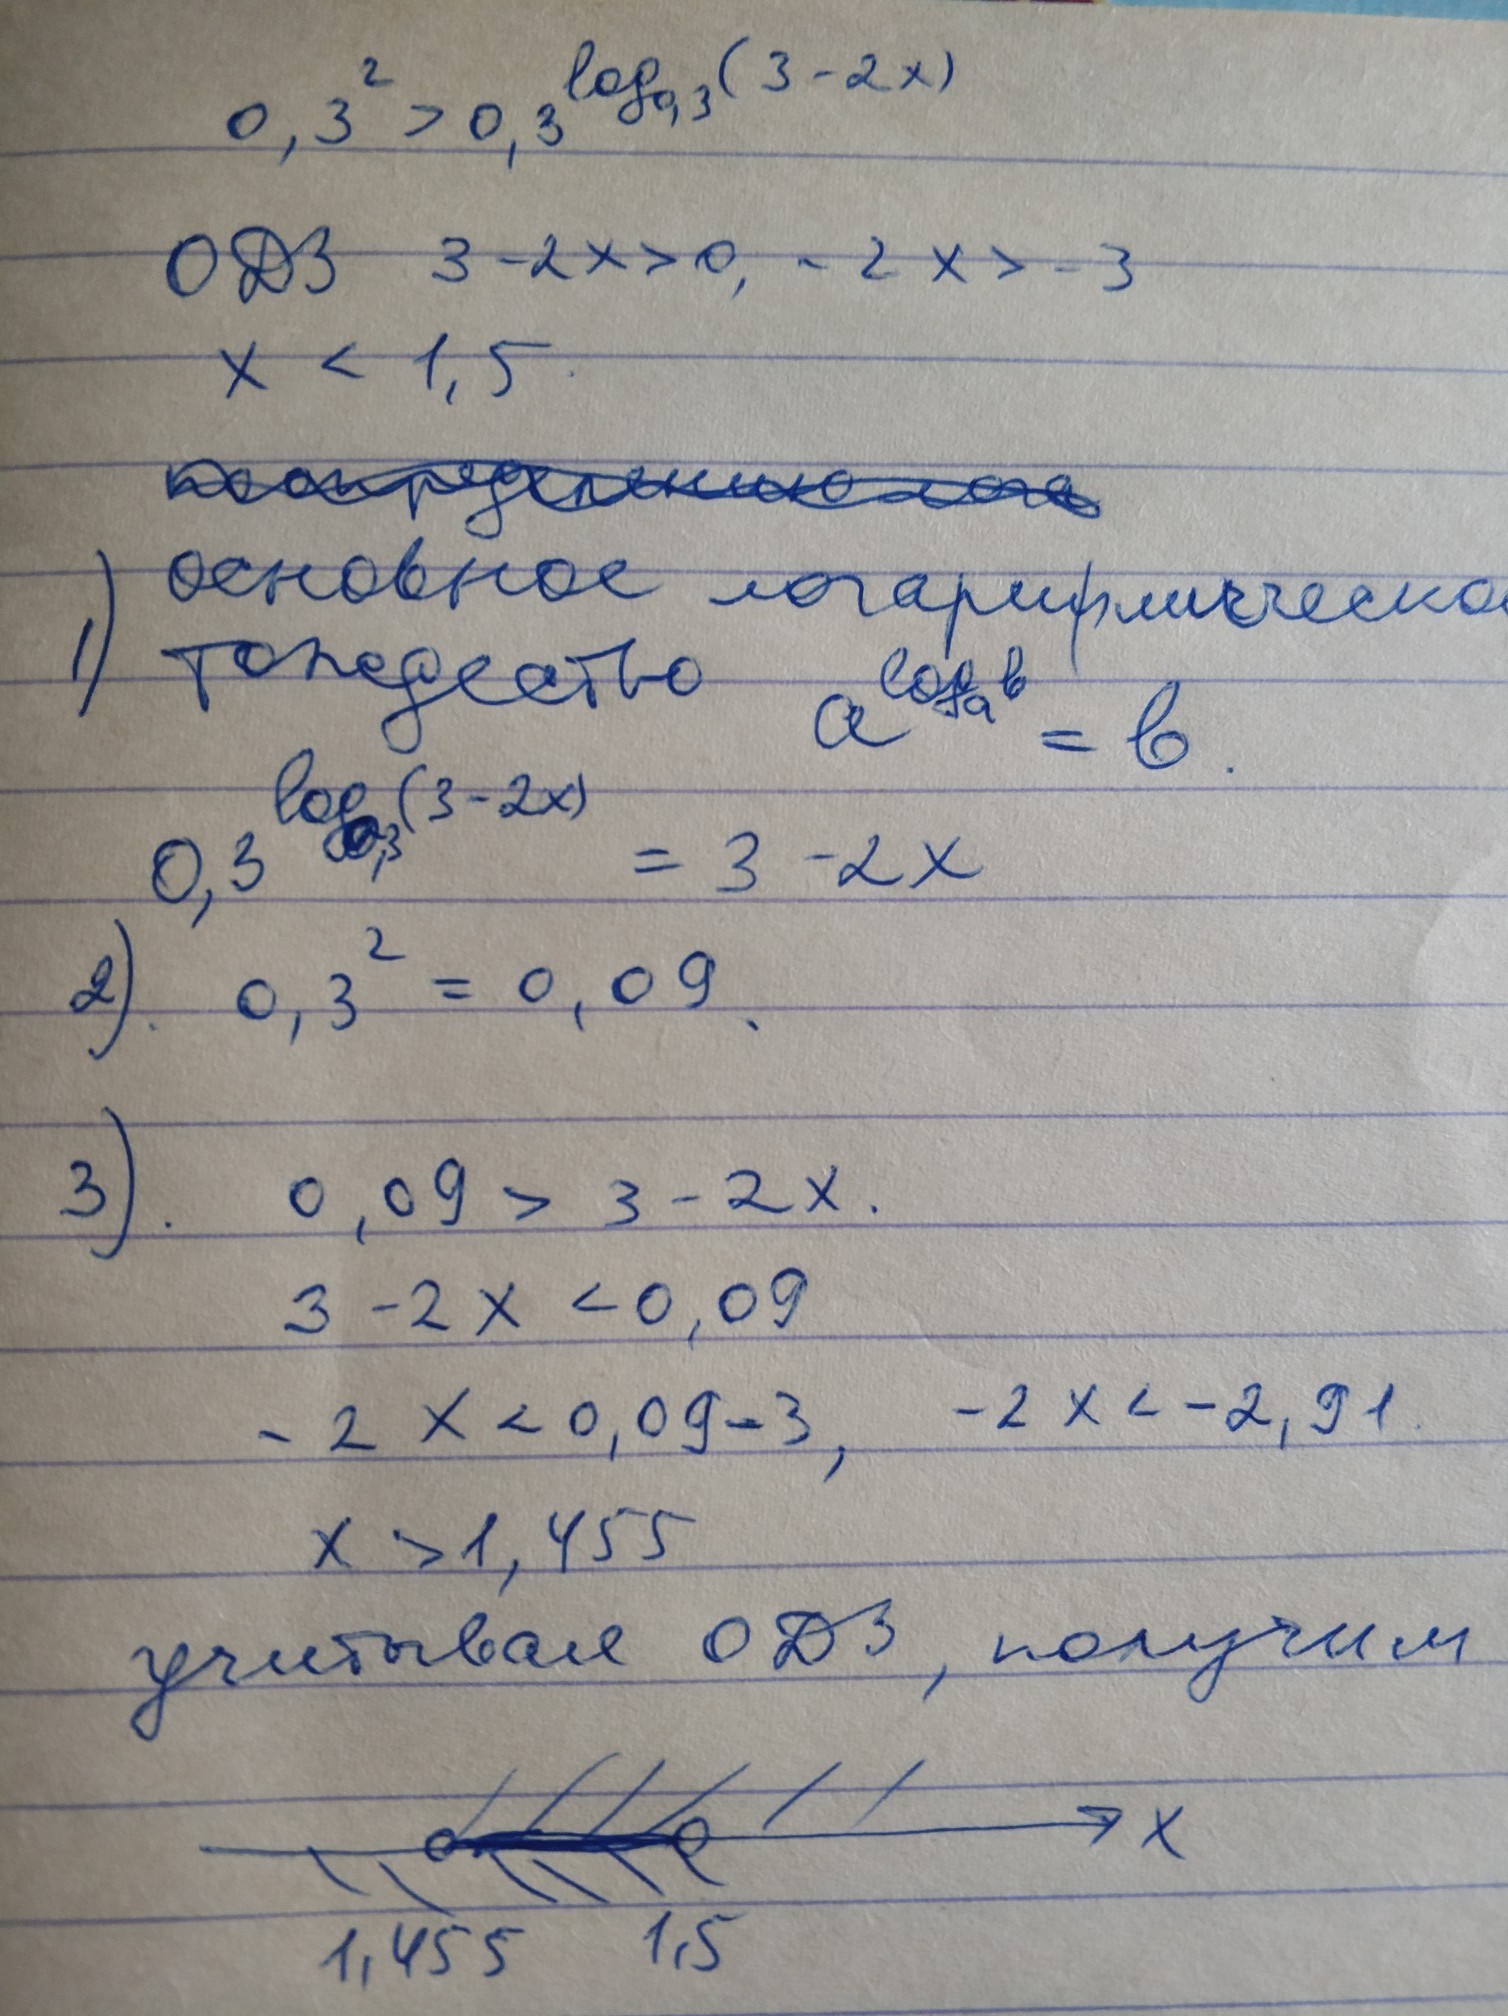 0,3² > 0,3^log₀,₃(3-2x)
ОДЗ 3-2x>0, -2x>-3
x < 1,5.
по определению лога
1) основное логарифмическое
тождество a^logₐb = b.
0,3^log₀,₃(3-2x) = 3-2x
2). 0,3² = 0,09.
3). 0,09 > 3-2x.
3-2x <0,09
-2x<0,09-3, -2x<-2,91.
x >1,455
учитывая ОДЗ, получим
x
1,455 1,5